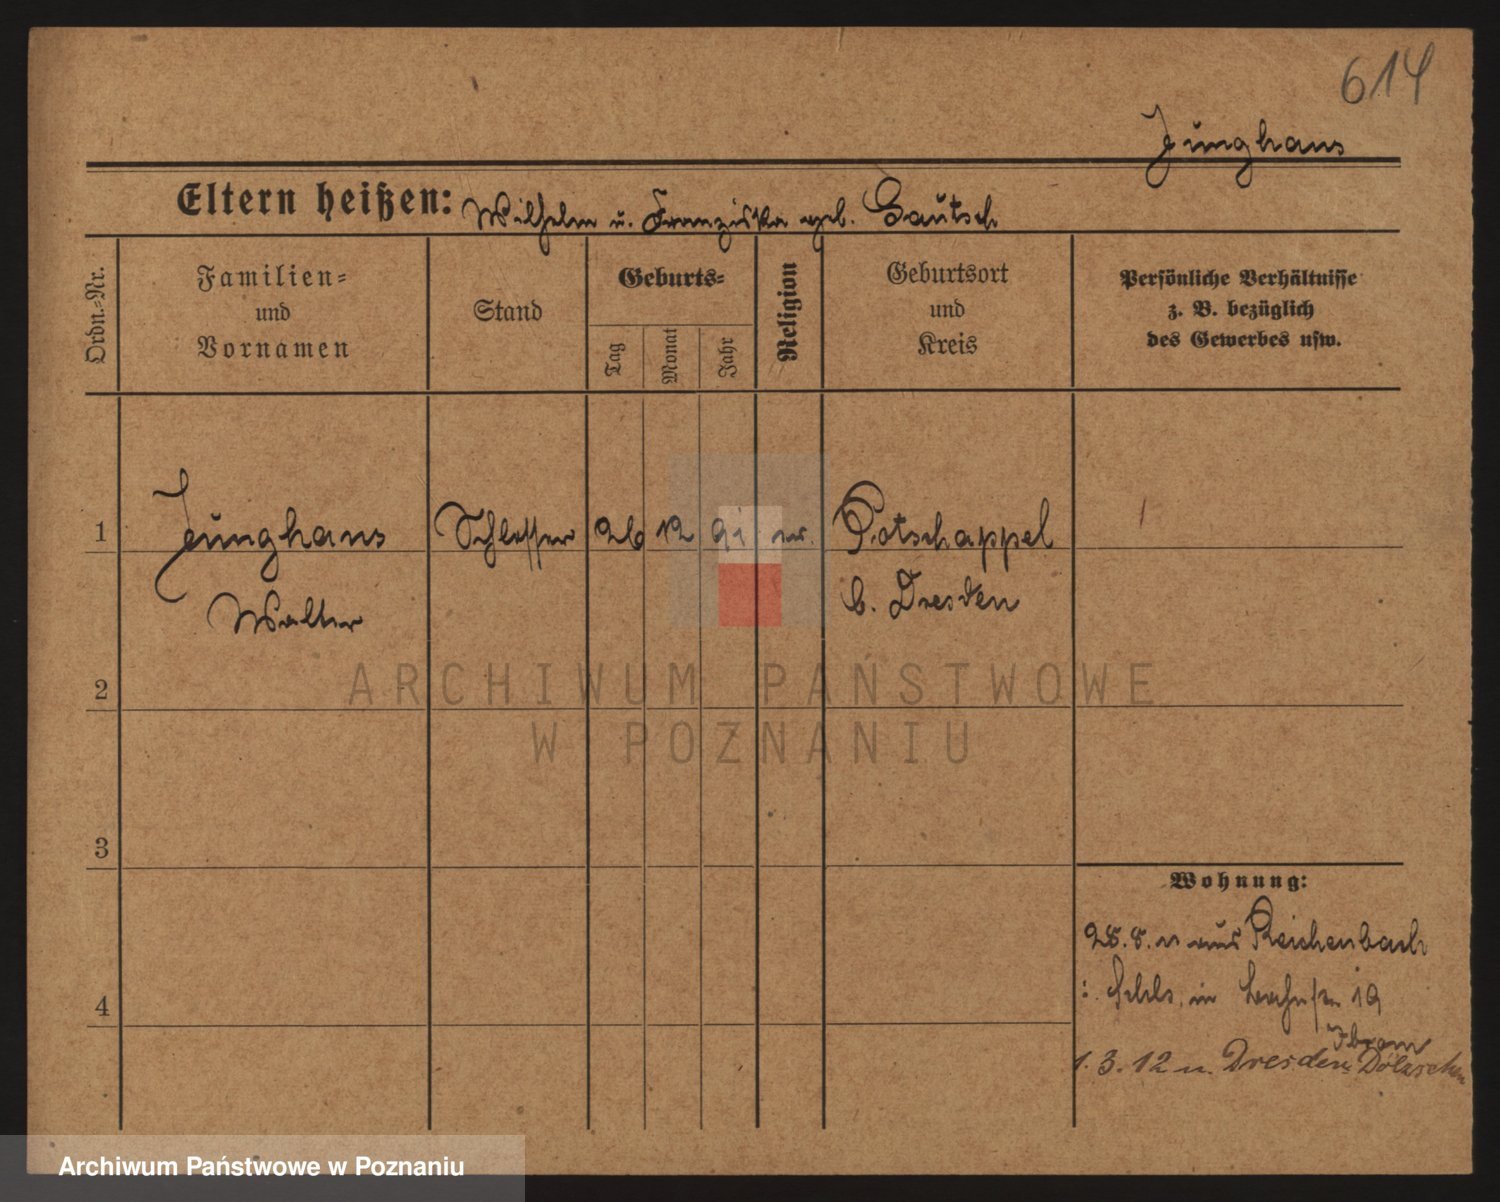 614
Junghans
Eltern heißen: Wilhelm u. Franziska geb. Gautsch
Ordn.-Nr.
Familien-
und
Vornamen
Stand
Geburts-
Tag
Monat
Jahr
Religion
Geburtsort
und
Kreis
Persönliche Verhältnisse
z. B. bezüglich
des Gewerbes usw.
1 Junghans Schlosser 26 12 91 ev. Potschappel
Walter b. Dresden
2
ARCHIWUM PAŃSTWOWE
W POZNANIU
3
Wohnung:
28.8.11 aus Reichenbach
: Schls. in 19
4
1.3.12 n. Dresden Dölzschen
Archiwum Państwowe w Poznaniu